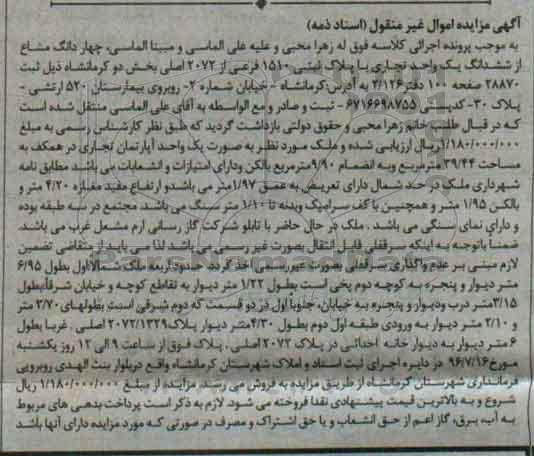 آگهی مزایده اموال غیر منقول (اسناد ذمه)
به موجب پرونده اجرائی کلاسه فوق له زهرا محبی و علیه علی الماسی و مبینا الماسی، چهار دانگ مشاع
از ششدانگ یک واحد تجاری با پلاک ثبتی ۱۵۱۰ فرعی از ۲۰۷۲ اصلی بخش دو کرمانشاه ذیل ثبت
۲۸۸۷۰ صفحه ۱۰۰ دفتر ۲/۱۲۶ به آدرس: کرمانشاه - خیابان شماره ۲- روبروی بیمارستان ۵۲۰ ارتشی -
پلاک ۳۰- کدپستی ۶۷۱۶۶۹۸۷۵۵ - ثبت و صادر و مع الواسطه به آقای علی الماسی منتقل شده است
که در قبال طلب خانم زهرا محبی و حقوق دولتی بازداشت گردید که طبق نظر کارشناس رسمی به مبلغ
۱/۱۸۰/۰۰۰/۰۰۰ریال ارزیابی شده و ملک مورد نظر به صورت یک واحد آپارتمان تجاری در همکف به
مساحت ۳۹/۴۴ مترمربع وبه انضمام ۹/۹۰مترمربع بالکن ودارای امتیازات و انشعابات می باشد مطابق نامه
شهرداری ملک در حد شمال دارای تعریض به عمق ۱/۹۷متر می باشدو ارتفاع مفید مغازه ۴/۲۰ متر و
بالکن ۱/۹۵ متر و همچنین با کف سرامیک وبدنه تا ۱/۱۰ متر سنگ می باشد. مجتمع در سه طبقه بوده
و دارای نمای سنگی می باشد . ملک در حال حاضر با تابلو شرکت گاز رسانی ارم مشعل غرب می باشد.
ضمنا باتوجه به اینکه سرقفلی قابل انتقال بصورت غیر رسمی می باشد لذا می باید از متقاضی تضمین
لازم مبنی بر عدم واگذاری سرقفلی بصورت غیررسمی اخذ گردد. حدود اربعه ملک: شمالااول بطول ۶/۹۵
متر دیوار و پنجره به کوچه دوم پخی است بطول ۱/۲۲ متر دیوار به تقاطع کوچه و خیابان شرقابطول
۳/۱۵متر درب ودیوار و پنجره به خیابان، جنوبا اول در دو قسمت که دوم شرقی است بطولهای ۳/۷۰ متر
و ۲/۱۰ متر دیوار به ورودی طبقه اول دوم بطول ۴/۳۰متر دیوار پلاک۲۰۷۲/۱۳۲۹ اصلی . غربا بطول
۶ متر دیوار به دیوار خانه احداثی در پلاک ۲۰۷۲ اصلی . پلاک فوق از ساعت ۹ الی ۱۲ روز یکشنبه
مورخ ۹۶/۷/۱۶ در دایره اجرای ثبت اسناد و املاک شهرستان کرمانشاه واقع دربلوار بنت الهدی روبرویی
فرمانداری شهرستان کرمانشاه از طریق مزایده به فروش می رسد. مزایده از مبلغ ۱/۱۸۰/۰۰۰/۰۰۰ ریال
شروع و به بالاترین قیمت پیشنهادی نقدا فروخته می شود. لازم به ذکر است پرداخت بدهی های مربوط
به آب، برق، گاز اعم از حق انشعاب و یا حق اشتراک و مصرف در صورتی که مورد مزایده دارای آنها باشد